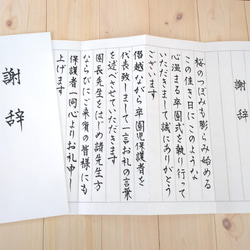 謝辞
謝辞
桜のつぼみも膨らみ始める
この佳き日に このような
心温まる卒園式を執り行って
いただきまして誠にありがとう
ございます
僭越ながら卒園児保護者を
代表致しまして一言お礼の言葉
を述べさせていただきます
園長先生をはじめ諸先生方
ならびにご来賓の皆様にも
保護者一同心よりお礼申し
上げます